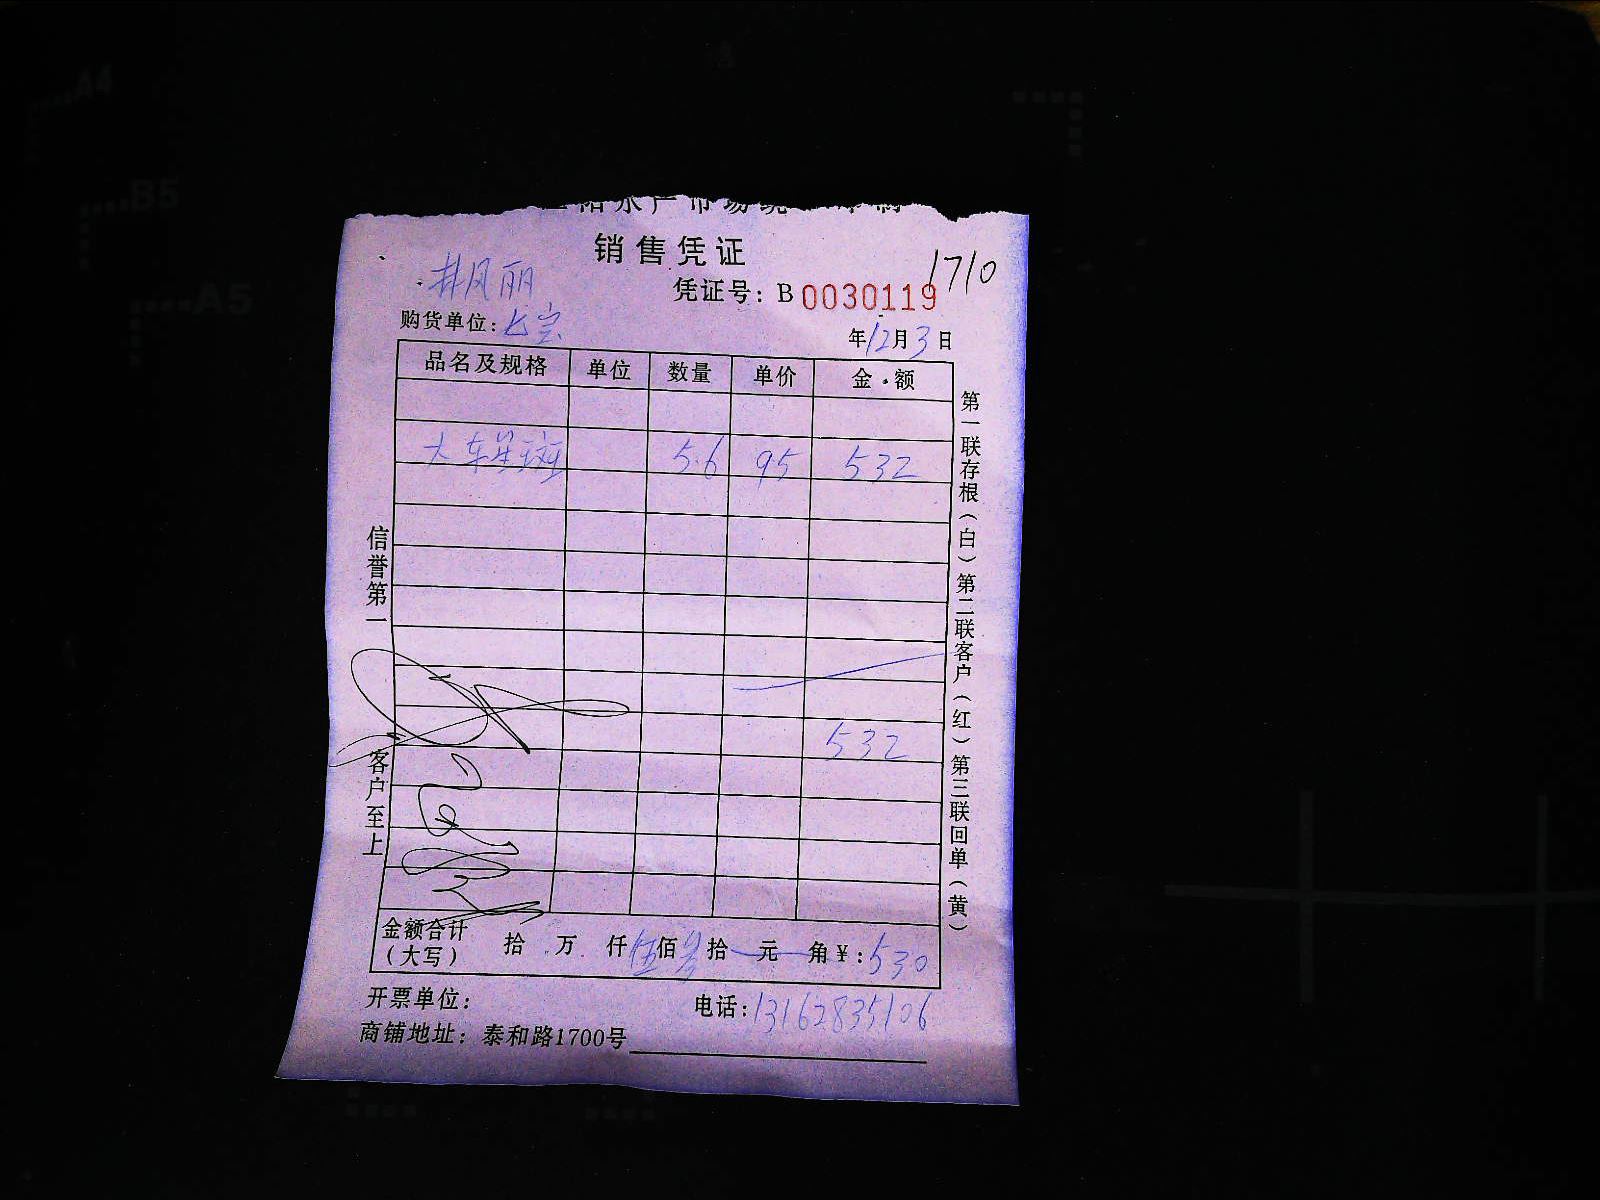 水产市场统
销售凭证
1710
凭证号：B 0030119
井风丽
购货单位：
年12月3日
品名及规格 单位 数量 单价 金·额
大东星斑 5.6 95 532
532
金额合计（大写） 拾 万 仟伍佰叁拾一元一角￥：530
开票单位： 电话：13162835106
商铺地址：泰和路1700号
信誉第一 客户至上
第一联存根（白）第二联客户（红）第三联回单（黄）
A4
B5
A5